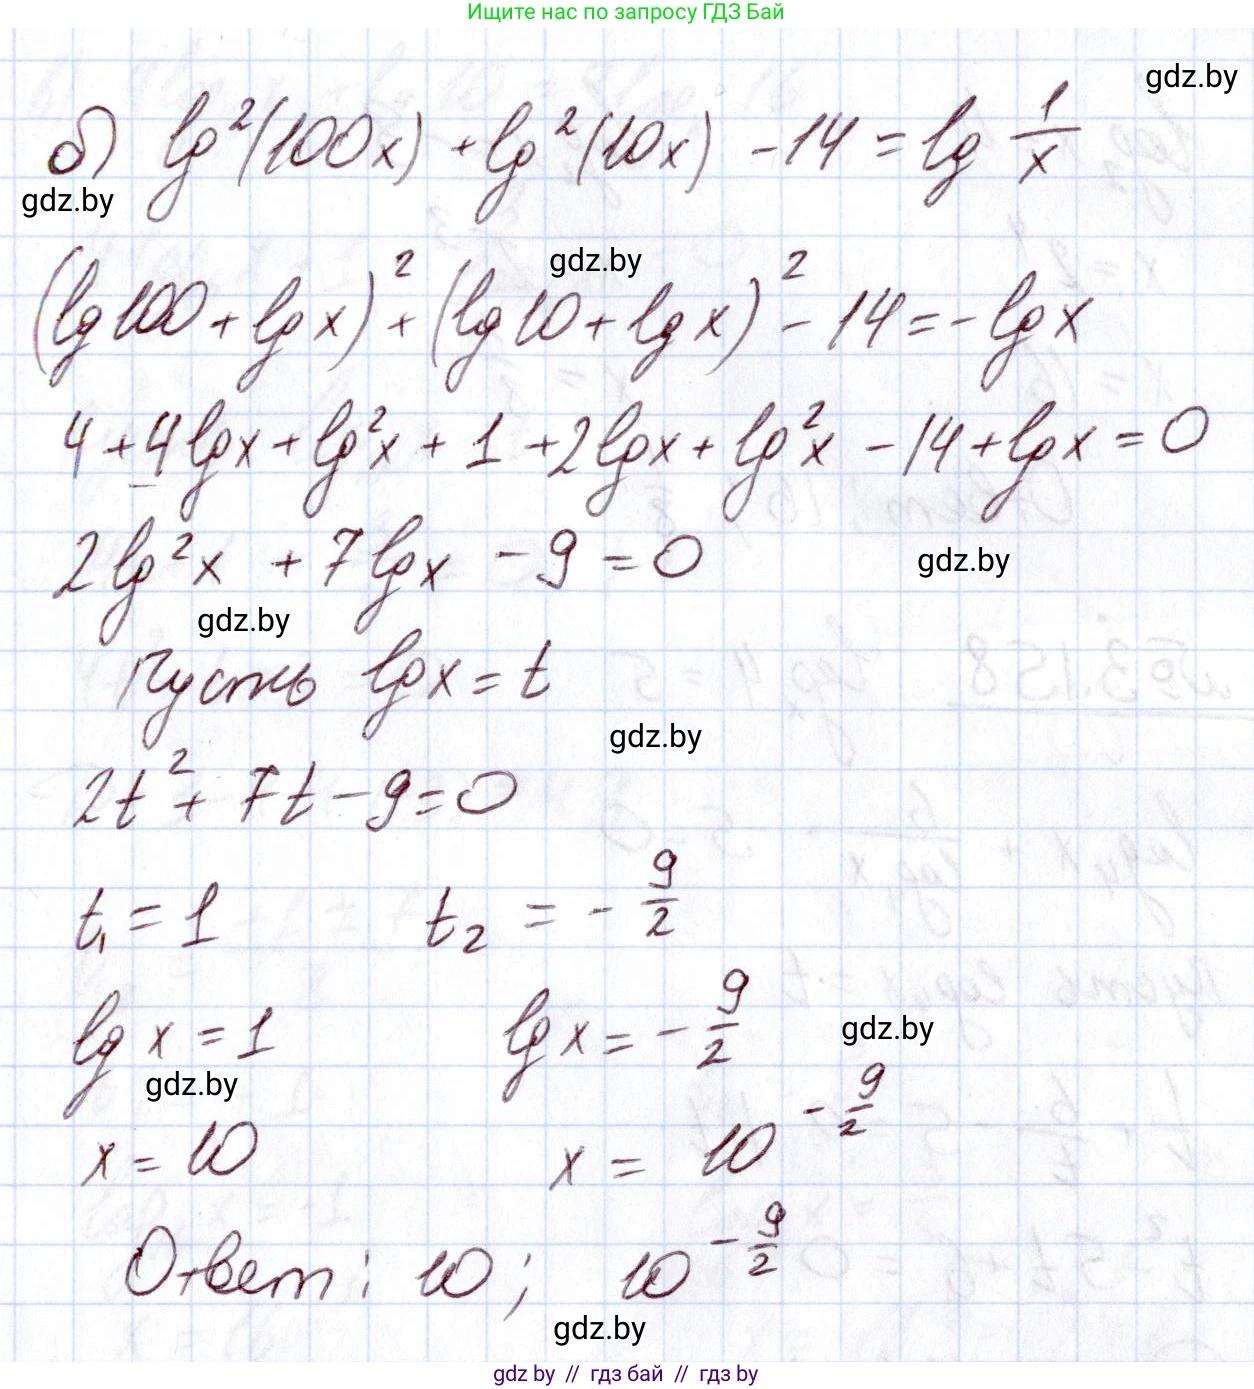 Ищите нас по запросу ГДЗ Бай
gdz.by
б) lg²(100x) + lg²(10x) - 14 = lg 1/x
gdz.by
gdz.by
(lg100 + lg x)² + (lg10 + lg x)² - 14 = - lg x
4 + 4lgx + lg²x + 1 + 2lgx + lg²x - 14 + lgx = 0
2lg²x + 7lgx - 9 = 0
gdz.by
gdz.by
Пусть lgx = t
gdz.by
2t² + 7t - 9 = 0
t₁ = 1 t₂ = - 9/2
lg x = 1 lg x = - 9/2
gdz.by
gdz.by
x = 10 x = 10^(-9/2)
Ответ: 10; 10^(-9/2)
gdz.by
gdz.by // гдз бай // гдз by